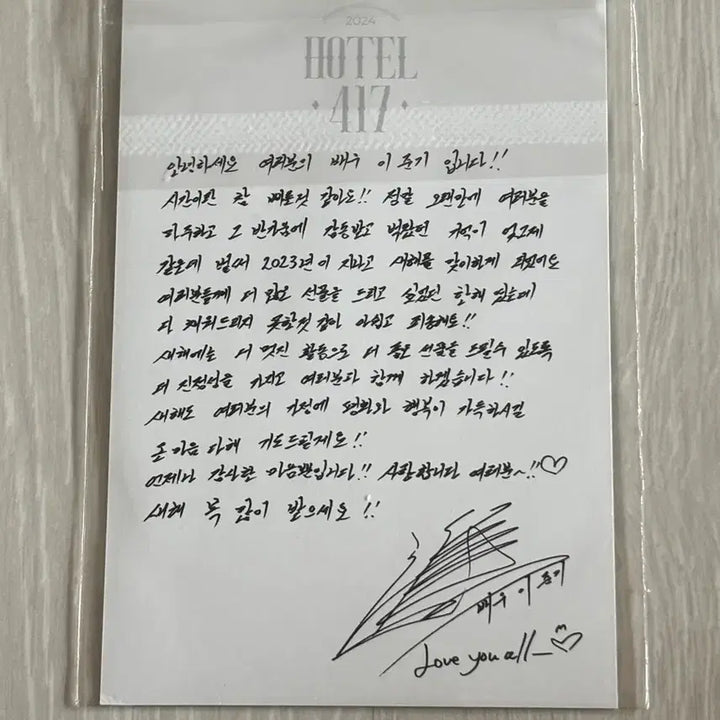 2024
HOTEL
417
안녕하세요 여러분의 배우 이준기 입니다!!
시간이란 참 빠른것 같아요!! 정말 오랜만에 여러분을
마주하고 그 반가움에 감동받고 벅찼던 기억이 엊그제
같은데 벌써 2023년이 지나고 새해를 맞이하게 되었어요
여러분들께 더 많은 선물을 드리고 싶었던 한해 였는데
다 채워드리지 못한것 같아 아쉽고 죄송해요!!
새해에는 더 멋진 활동으로 더 좋은 선물을 드릴수 있도록
더 진정성을 가지고 여러분과 함께 하겠습니다!!
새해도 여러분의 가정에 평화와 행복이 가득하시길
온 마음 다해 기도드릴게요!!
언제나 감사한 마음뿐입니다!! 사랑합니다 여러분~!!♡
새해 복 많이 받으세요!!
배우 이준기
Love you all_♡